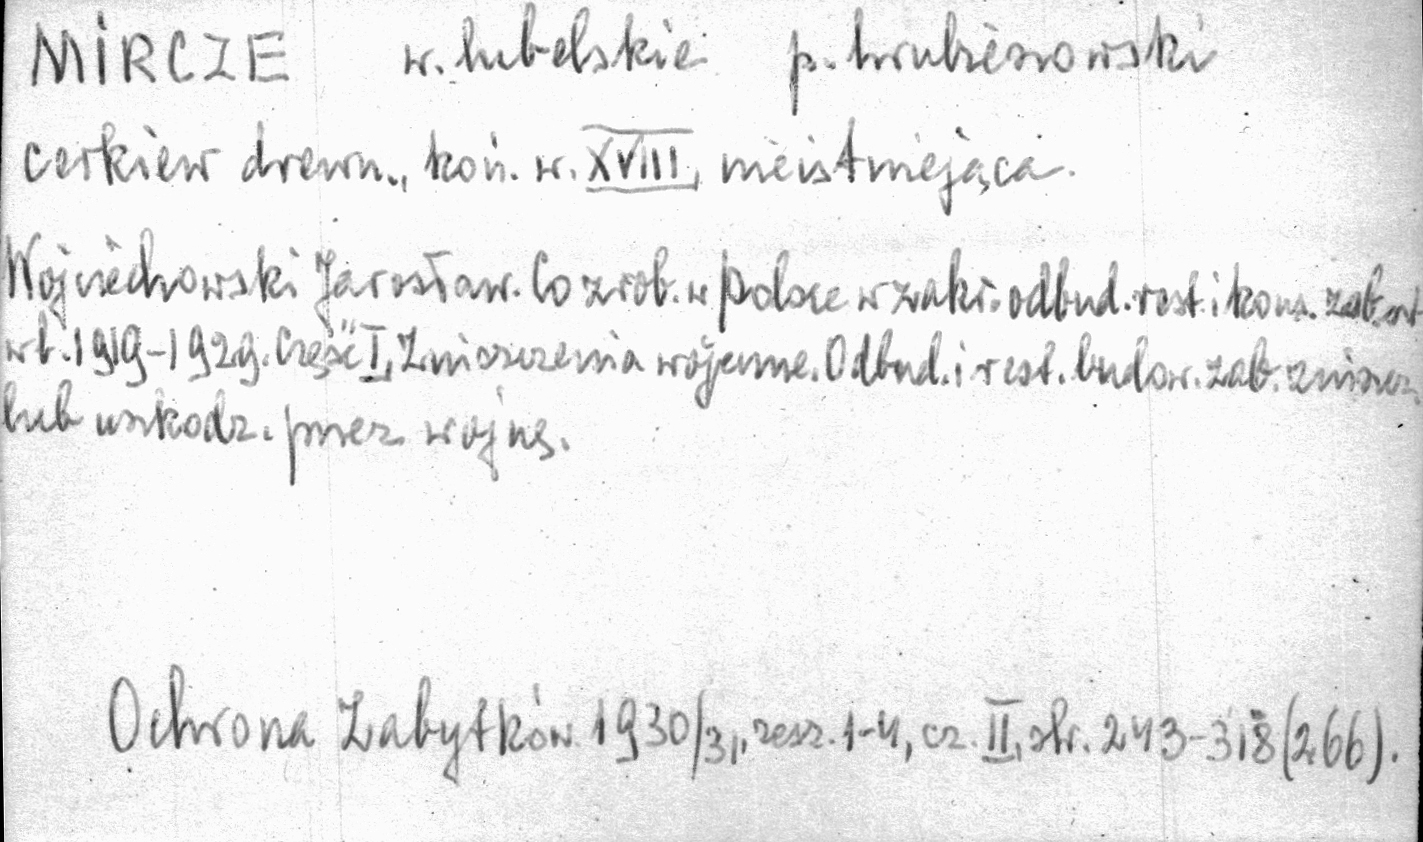 MIRCZE w. lubelskie p. hrubieszowski
cerkiew drewn., koń. w. XVIII, nieistniejąca.
Wojciechowski Jarosław. Co zrob. w Polsce w zakr. odbud. rest. i kons. zab.
w l. 1919-1929. Część I, Zniszczenia wojenne. Odbud. i rest. budow. zab. zniszcz.
lub uszkodz. przez wojnę.
Ochrona Zabytków 1930/31, zesz. 1-4, cz. II, str. 243-318 (266).